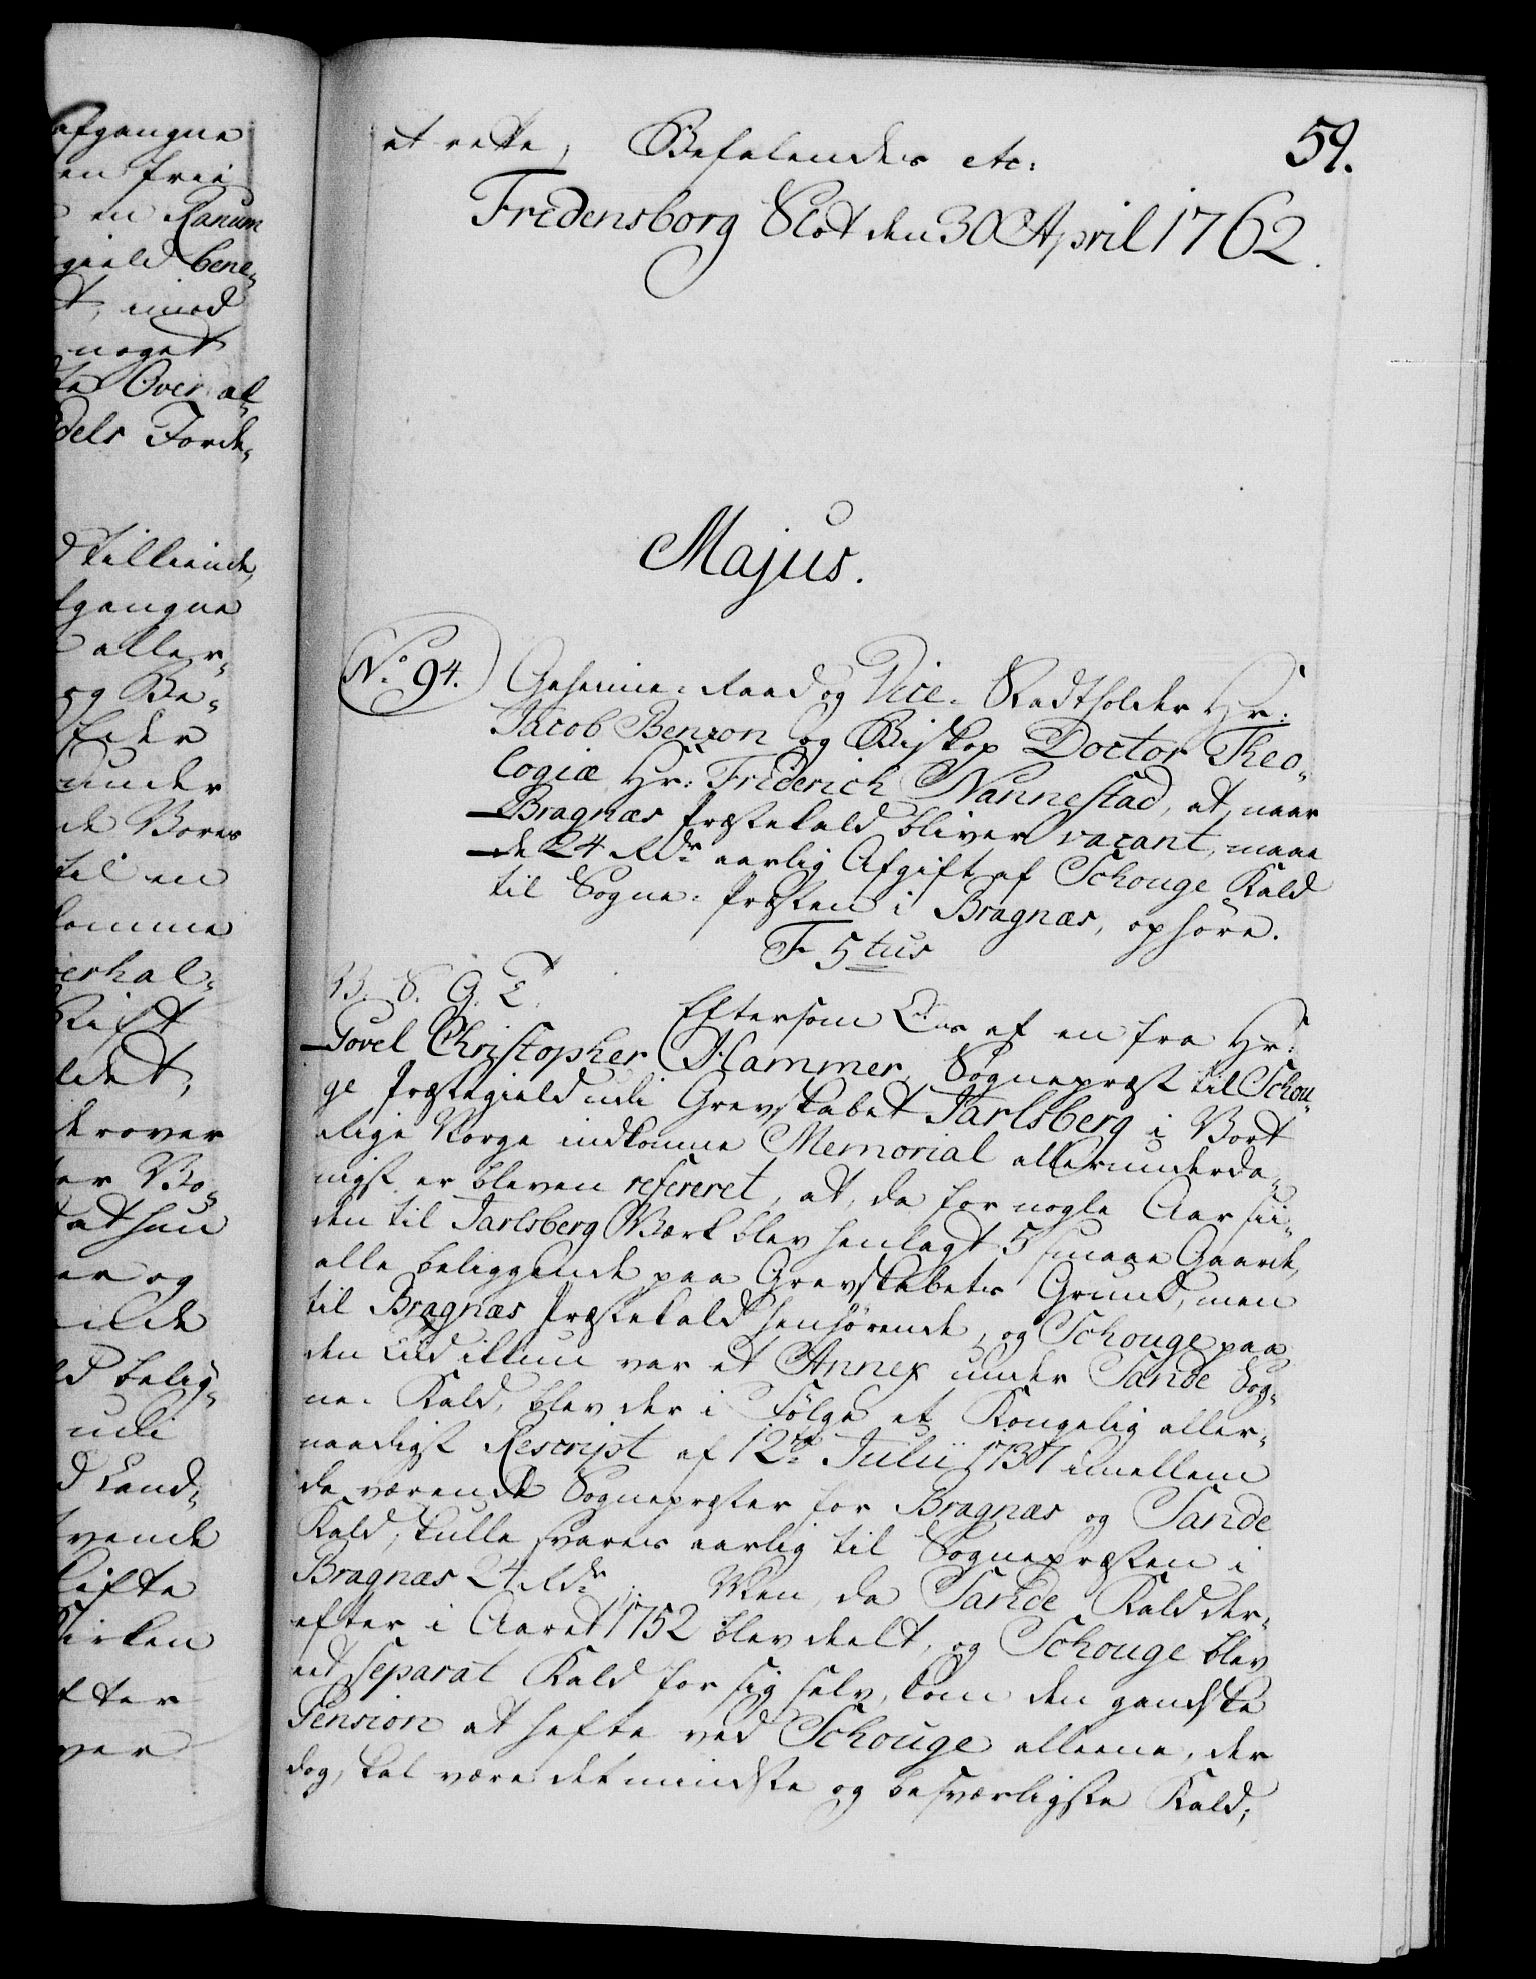 afgangne
en frie
en Ranum
gield bene-
t, imod
noget
te Over al-
dels Forde-
d tilleinde
fgangne
aller-
og Be-
under
de Vores
til en
komme
verhal-
Rift
ldet,
derover
er Bo-
at hun
er og
ilde
ld belig-
udi
d Land-
vende
Kirken
fter
ver
59.
at rette, Befalendes etc:
Fredensborg Slot den 30 April 1762.
Majus.
No. 94. Geheime-Raad og Vice-Stadtholder Hr:
Jacob Benzon og Biskop Doctor Theo-
logiæ Hr: Friderich Nannestad, at, naar
Bragnæs Præstekald bliver vacant, maae
de 24 Rdr aarlig Afgift af Schouge Kald
til Sogne-Præsten i Bragnæs, ophøre.
F 5tus
V. S. G. T. Eftersom Os af en fra Hr:
Povel Christopher Hammer, Sognepræst til Schou-
ge Præstegield udi Grevskabet Jarlsberg i Vort
Rige Norge indkomne Memorial allerunderda-
nigst er bleven refereret, at, da for nogle Aar si-
den til Jarlsberg Værk blev henlagt 5 smaae Gaarde,
alle beliggende paa Grevskabets Grund, men
til Bragnæs Præstekald henhørende, og Schouge paa
den Tiid ikkun var et Annex under Sande Sog-
ne-Kald, blev der i Følge et Kongelig aller-
naadigst Rescript af 12te Julii 1737 imellem
da værende Sognepræster for Bragnæs og Sande
Kald, skulle svares aarlig til Sognepræsten i
Bragnæs 24 Rdr: Men, da Sande Kald der-
efter i Aaret 1752 blev deelt, og Schouge blev
et separat Kald for sig selv, kom den gandske
Pension at hefte ved Schouge alleene, der
dog, skal være det mindste og besværligste Kald,